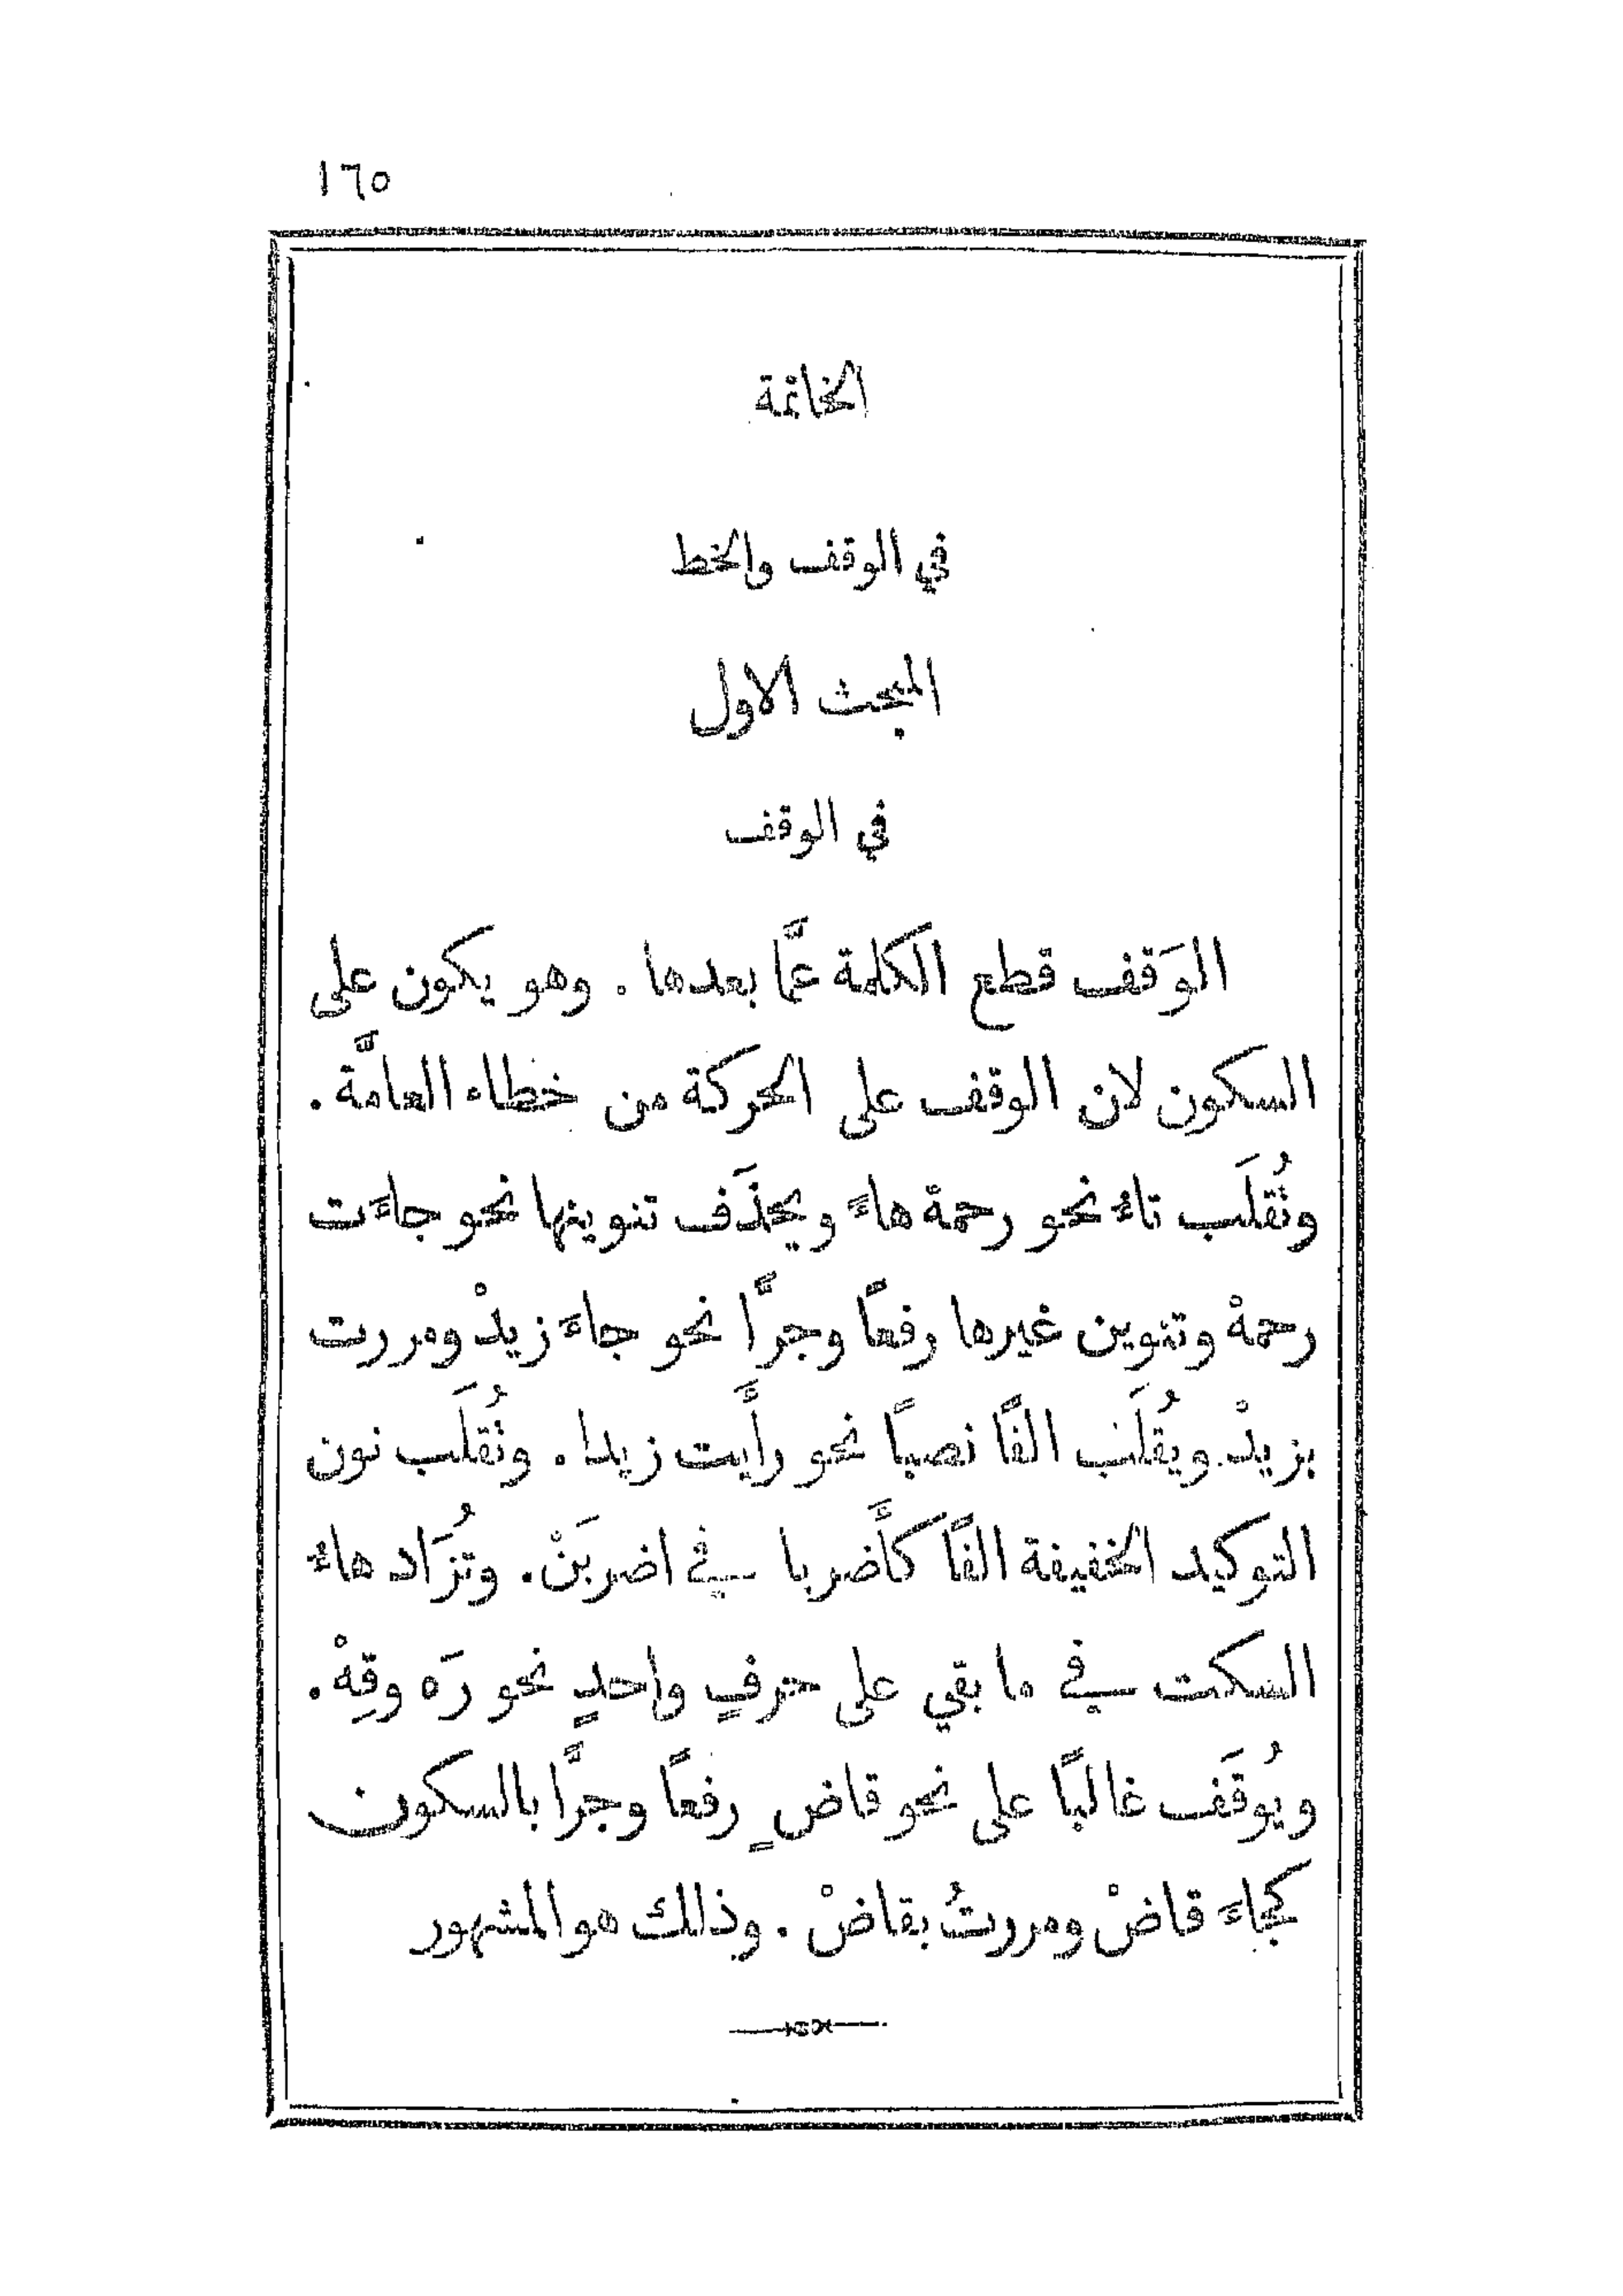 ١٦٥
الخاتمة
في الوقف والخط
المبحث الاول
في الوقف
الوَقف قطع الكلمة عمَّا بعدها . وهو يكون على
السكون لان الوقف على الحركة من خطاء العامَّة .
وتُقلَب تاءُ نحو رحمة هاءً ويحذَف تنوينها نحو جاءَت
رحمهْ وتنوين غيرها رفعًا وجرًّا نحو جاءَ زيدْ ومررت
بزيدْ . ويُقلَب الفًا نصبًا نحو رأَيت زيدا . وتُقلَب نون
التوكيد الخفيفة الفًا كأَضربا في اضربَنْ . وتُزَاد هاءُ
السكت في ما بقي على حرفٍ واحدٍ نحو رَه وقِهْ .
ويُوقَف غالبًا على نحو قاضٍ رفعًا وجرًّا بالسكون
كجاءَ قاضْ ومررتُ بقاضْ . وذلك هو المشهور